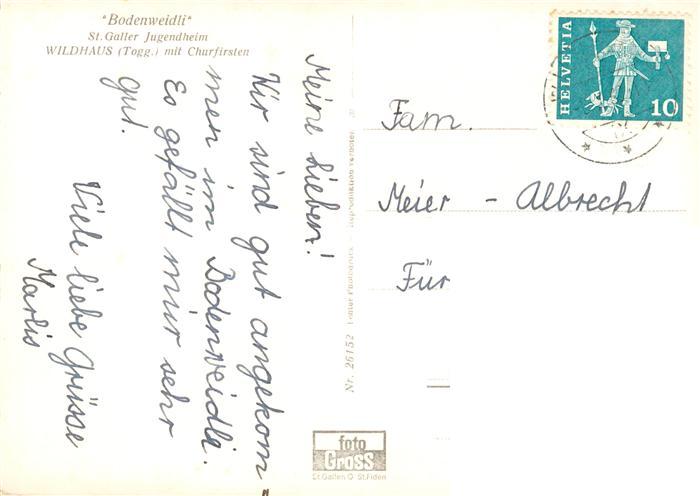 "Bodenweidli"
St. Galler Jugendheim
WILDHAUS (Togg.) mit Churfirsten
Meine Lieben!
Wir sind gut angekom„
men im Bodenweidli.
Es gefällt mir sehr
gut.
Viele liebe Grüsse
Marlis
Nr. 26152
Reproduktion verboten
HELVETIA
10
Fam.
Meier - Albrecht
Für
foto
Gross
St. Gallen O St. Fiden